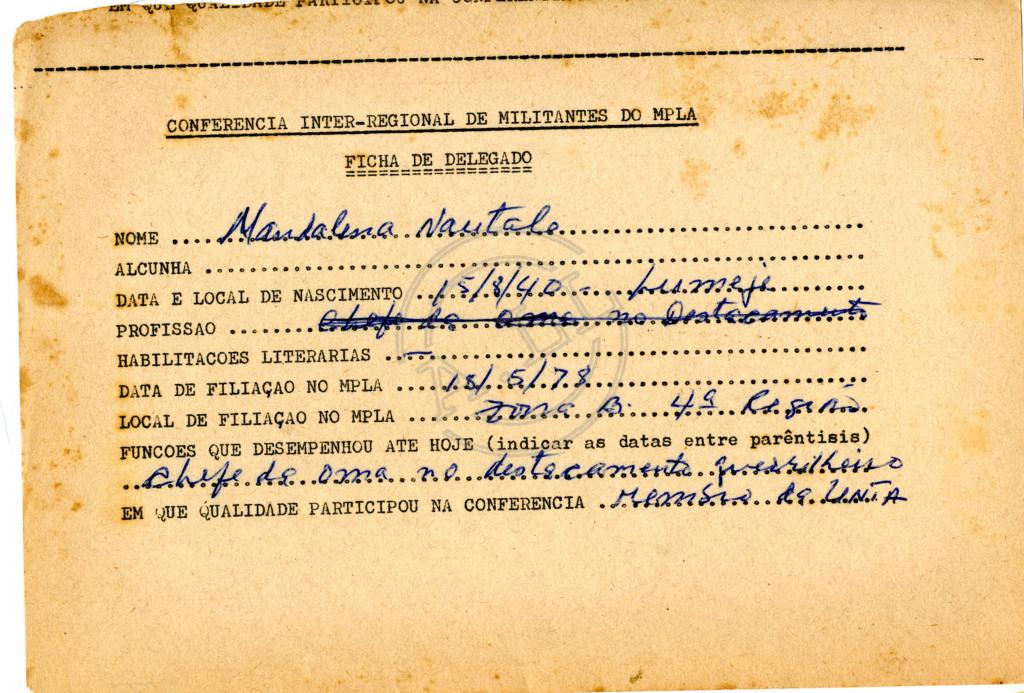 EM QUE QUALIDADE PARTICIPOU NA CONFERENCIA
CONFERENCIA INTER-REGIONAL DE MILITANTES DO MPLA
FICHA DE DELEGADO
NOME ... Mandalena
ALCUNHA ...
DATA E LOCAL DE NASCIMENTO ... 15/8/40 - Lumeje
PROFISSAO ... Chefe da Oma no Destacamento
HABILITACOES LITERARIAS ... —
DATA DE FILIAÇAO NO MPLA ... 15/5/78
LOCAL DE FILIAÇAO NO MPLA ... Zona B. 4ª Região
FUNCOES QUE DESEMPENHOU ATE HOJE (indicar as datas entre parêntisis)
Chefe da oma no destacamento guerrilheiro
EM QUE QUALIDADE PARTICIPOU NA CONFERENCIA ... Membro da